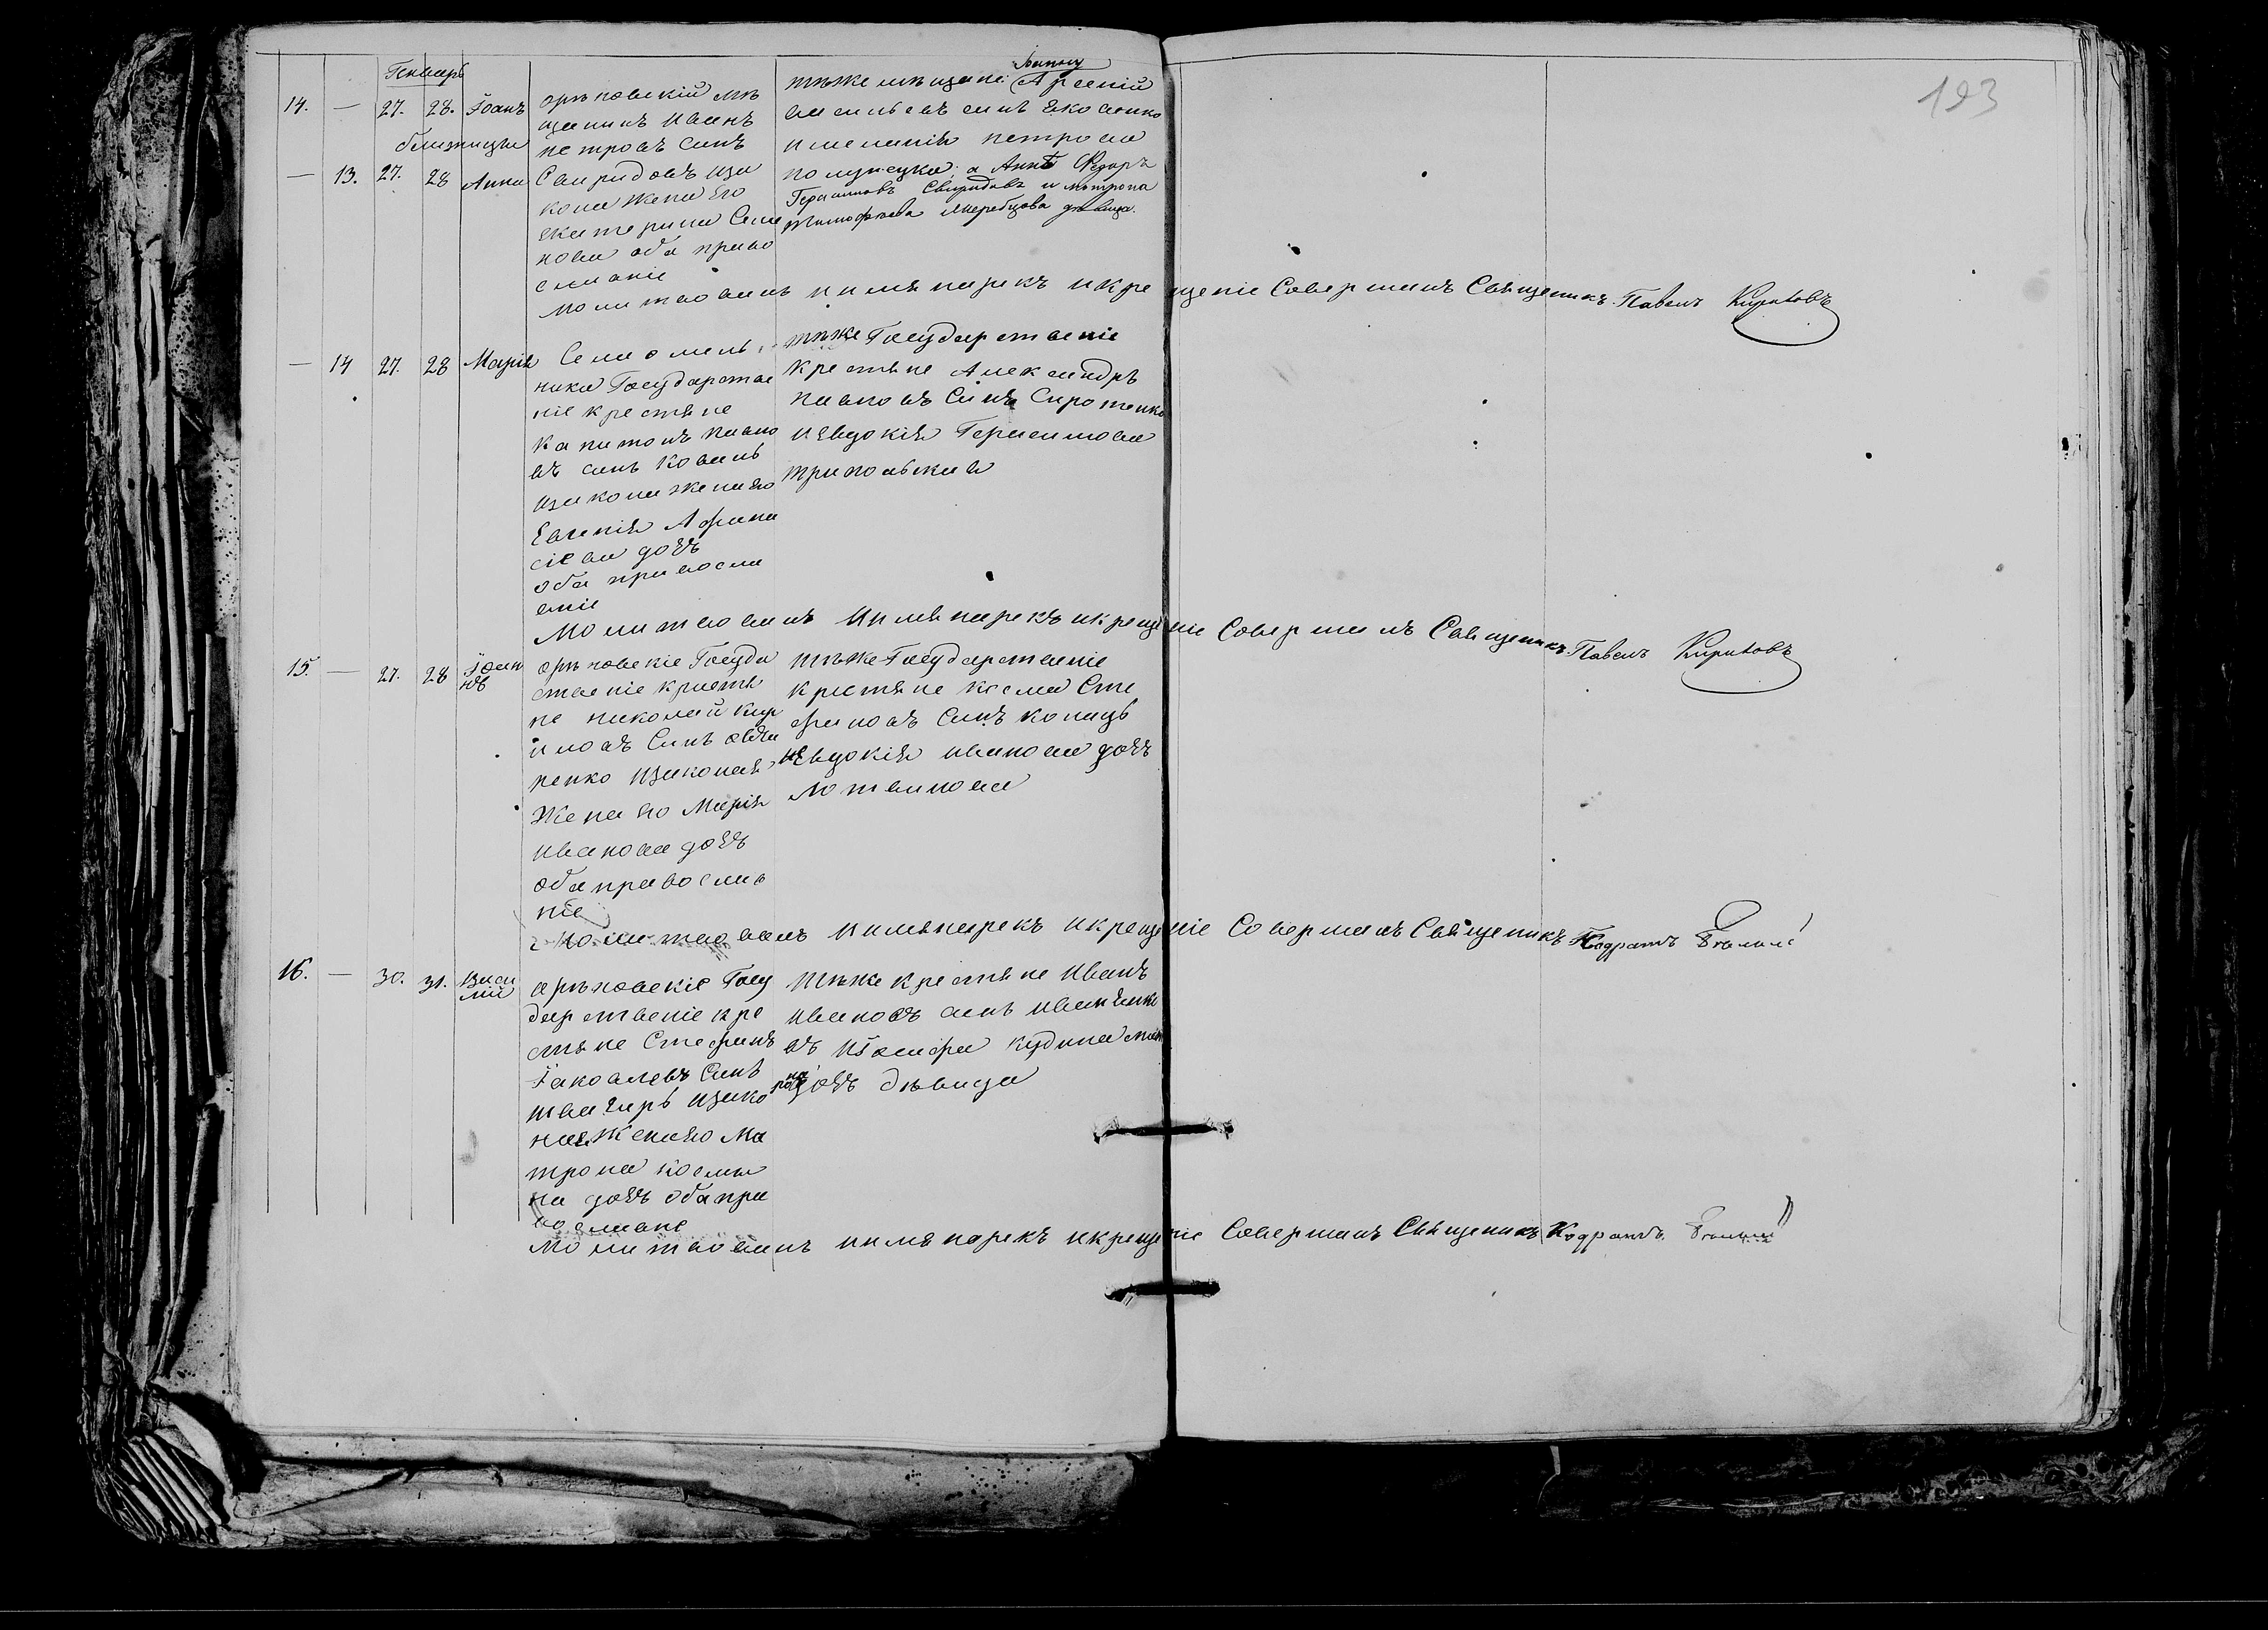 193
Генварь
14. — 27. 28. Іоанъ
близницы
— 13. 27. 28 Анна
орѣховскій мѣ
щанинъ Иванъ
петровъ синъ
Свиридовъ иза
кона жена Его
екатерина Семе
нова оба право
славніе
Іоанну
тѣже мѣщане Арсеній
васильевъ синъ
имеланія петрова
полунецка; а Аннѣ Федоръ
Герасимовъ Свиридовъ и матрона
тимофѣева дѣвица.
молитвовалъ иимя нарекъ икрещеніе Совершилъ Священикъ Павелъ Кириковъ
— 14 27. 28 Марія
Села омель
ника Государстве
ніе крестяне
капитонъ павло
въ синъ коваль
изакона жена его
Евгенія Афана
сіева дочь
оба правосла
вніе
тѣже Государственіе
крестяне Александръ
павловъ Синъ Сиротенко
иЕвдокія Герасимова
трипольская
Молитвовалъ иимя нарекъ икрещеніе Совершилъ Священикъ Павелъ Кириковъ
15. — 27. 28 Іоан
нъ
орѣховскіе Госуда
рственіе крестя
не николай кир
иловъ Синъ
изаконая
Жена его Марія
иванова дочь
оба православ
ніе
тѣже Государственіе
крестяне косма Сте
фановъ Синъ копицъ
иЕвдокія иванова дочь
Молитвовалъ иимя нарекъ икрещеніе Совершилъ Священикъ Кодратъ
16. — 30. 31. Васи
лій
орѣховскіе Госу
дарственіе кре
стяне Стефанъ
Іаковлевъ Синъ
изако
ная Жена его Ма
трона косми
на дочь оба пра
вославніе
тѣже крестяне Иванъ
ивановъ синъ иванченко
въ
дочь дѣвица
Молитвовалъ иимя нарекъ икрещеніе Совершилъ Священикъ Кодратъ